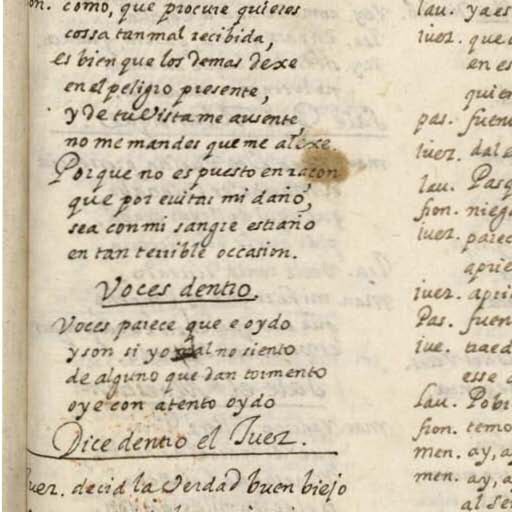 on. como, que procure quieres
cossa tan mal recibida,
es bien que los demas dexe
en el peligro presente,
y de tu vista me ausente,
no me mandes que me alexe
Porque no es puesto en racon
que por euitar mi daño,
sea con mi sangre estraño
en tan terrible occasion.
Voces dentro.
Voces parece que e oydo
y son si yo mal no siento
de alguno que dan tormento
oye con atento oydo
Dice dentro el Juez.
Juez. decid la verdad buen biejo
lau. ya es
juez. que
en es
quien
pas. fuen
juez. dal
lau. Pasq
fron. niega
juez. parec
aprie
juez. apri
Pas. fuen
jue. traed
esse
Lau. Pobr
fron. temo
men. ay, a
men. ay, a
al se